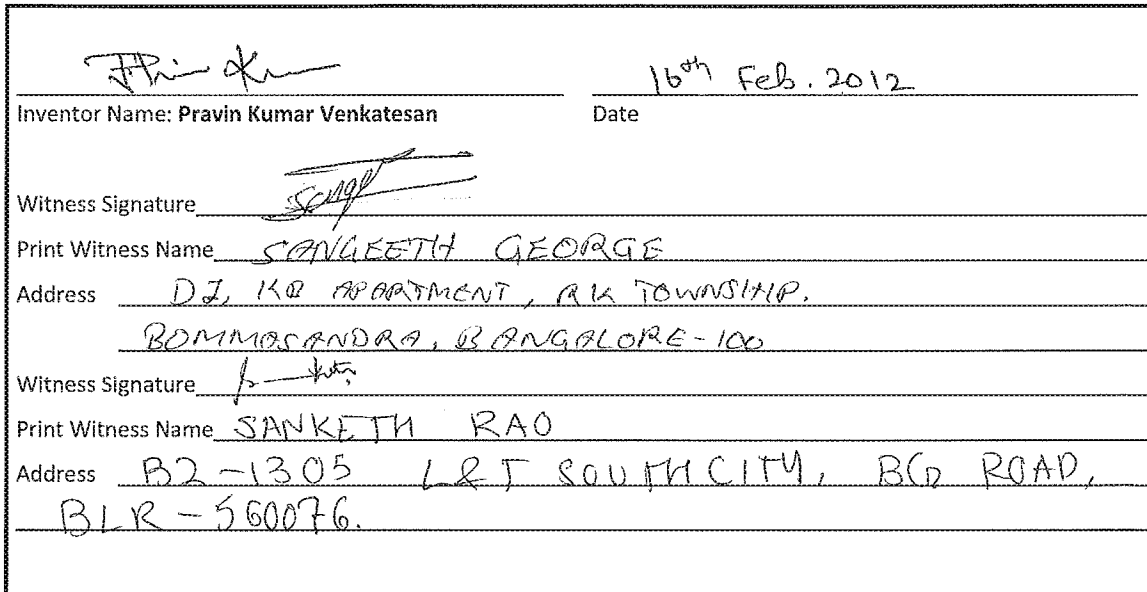 16th Feb. 2012
Inventor Name: Pravin Kumar Venkatesan Date
Witness Signature
Print Witness Name SANGEETH GEORGE
Address APARTMENT, RK TOWNSHIP.
BOMMASANDRA, BANGALORE-100
Witness Signature
Print Witness Name SANKETH RAO
Address B2-1305 L&T SOUTH CITY, ROAD,
BLR-560076.